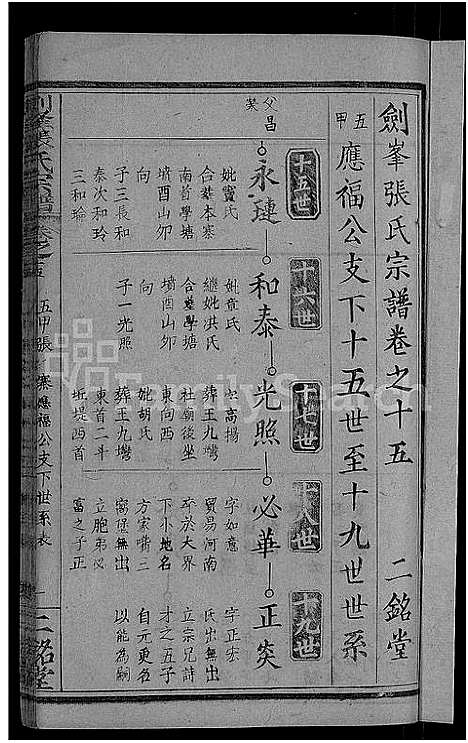 劍峯張氏宗譜卷之十五 二銘堂
五甲 應福公支下十五世至十九世世系
十五世 十六世 十七世 十八世 十九世
父 昌
永璉 和泰 光照 必華 正炎
妣竇氏
合塟本寨
南首學塘
墳酉山夘
向
子三長和
泰次和玲
三和瑜
妣童氏
繼妣洪氏
合塟學塘
墳酉山夘
向
子一光照
字高揚
葬王九塆
杜廟後坐
東向西
妣胡氏
葬王九塆
東首二斗
坵堤西首
字如意
貿易河南
卒於大界
下小地名
方家嘴三
窩堡無出
立胞弟必
富之子正
字正宏
氏出無
立宗兄詩
才之五子
自元更名
以能為嗣
劍峯張氏宗譜 卷之十五
五甲張寨應福公支下世系表
一 二銘堂
FamilySearch